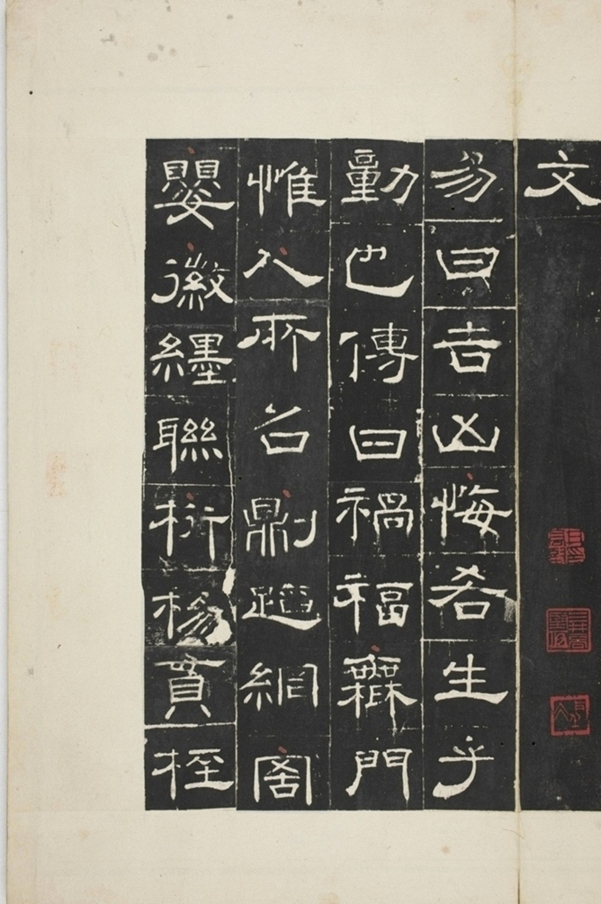 文
易曰吉凶悔吝生乎
動也傳曰禍福無門
惟人所召則網罟
嬰徽纆聯桁楊貫桎